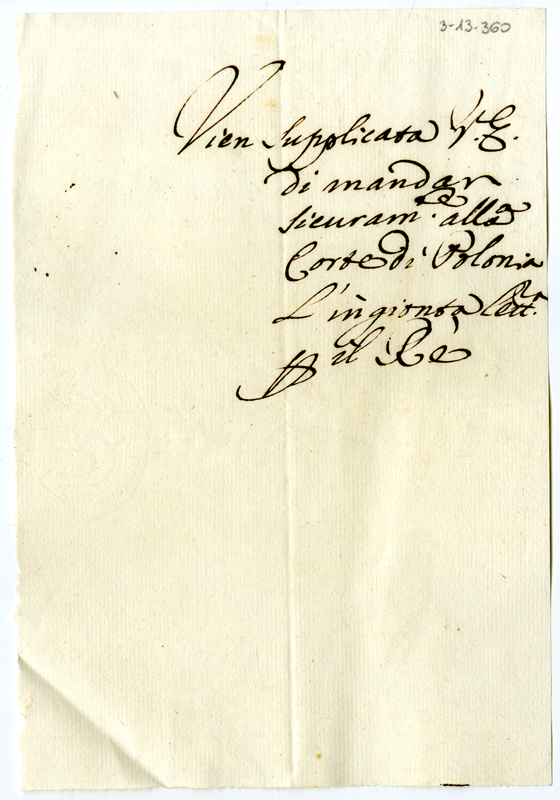 3-13-360
Vien supplicata V. E.
di mandar
sicuram.te alla
Corte di Polonia
L'ingionta lett.ra
p il Rè